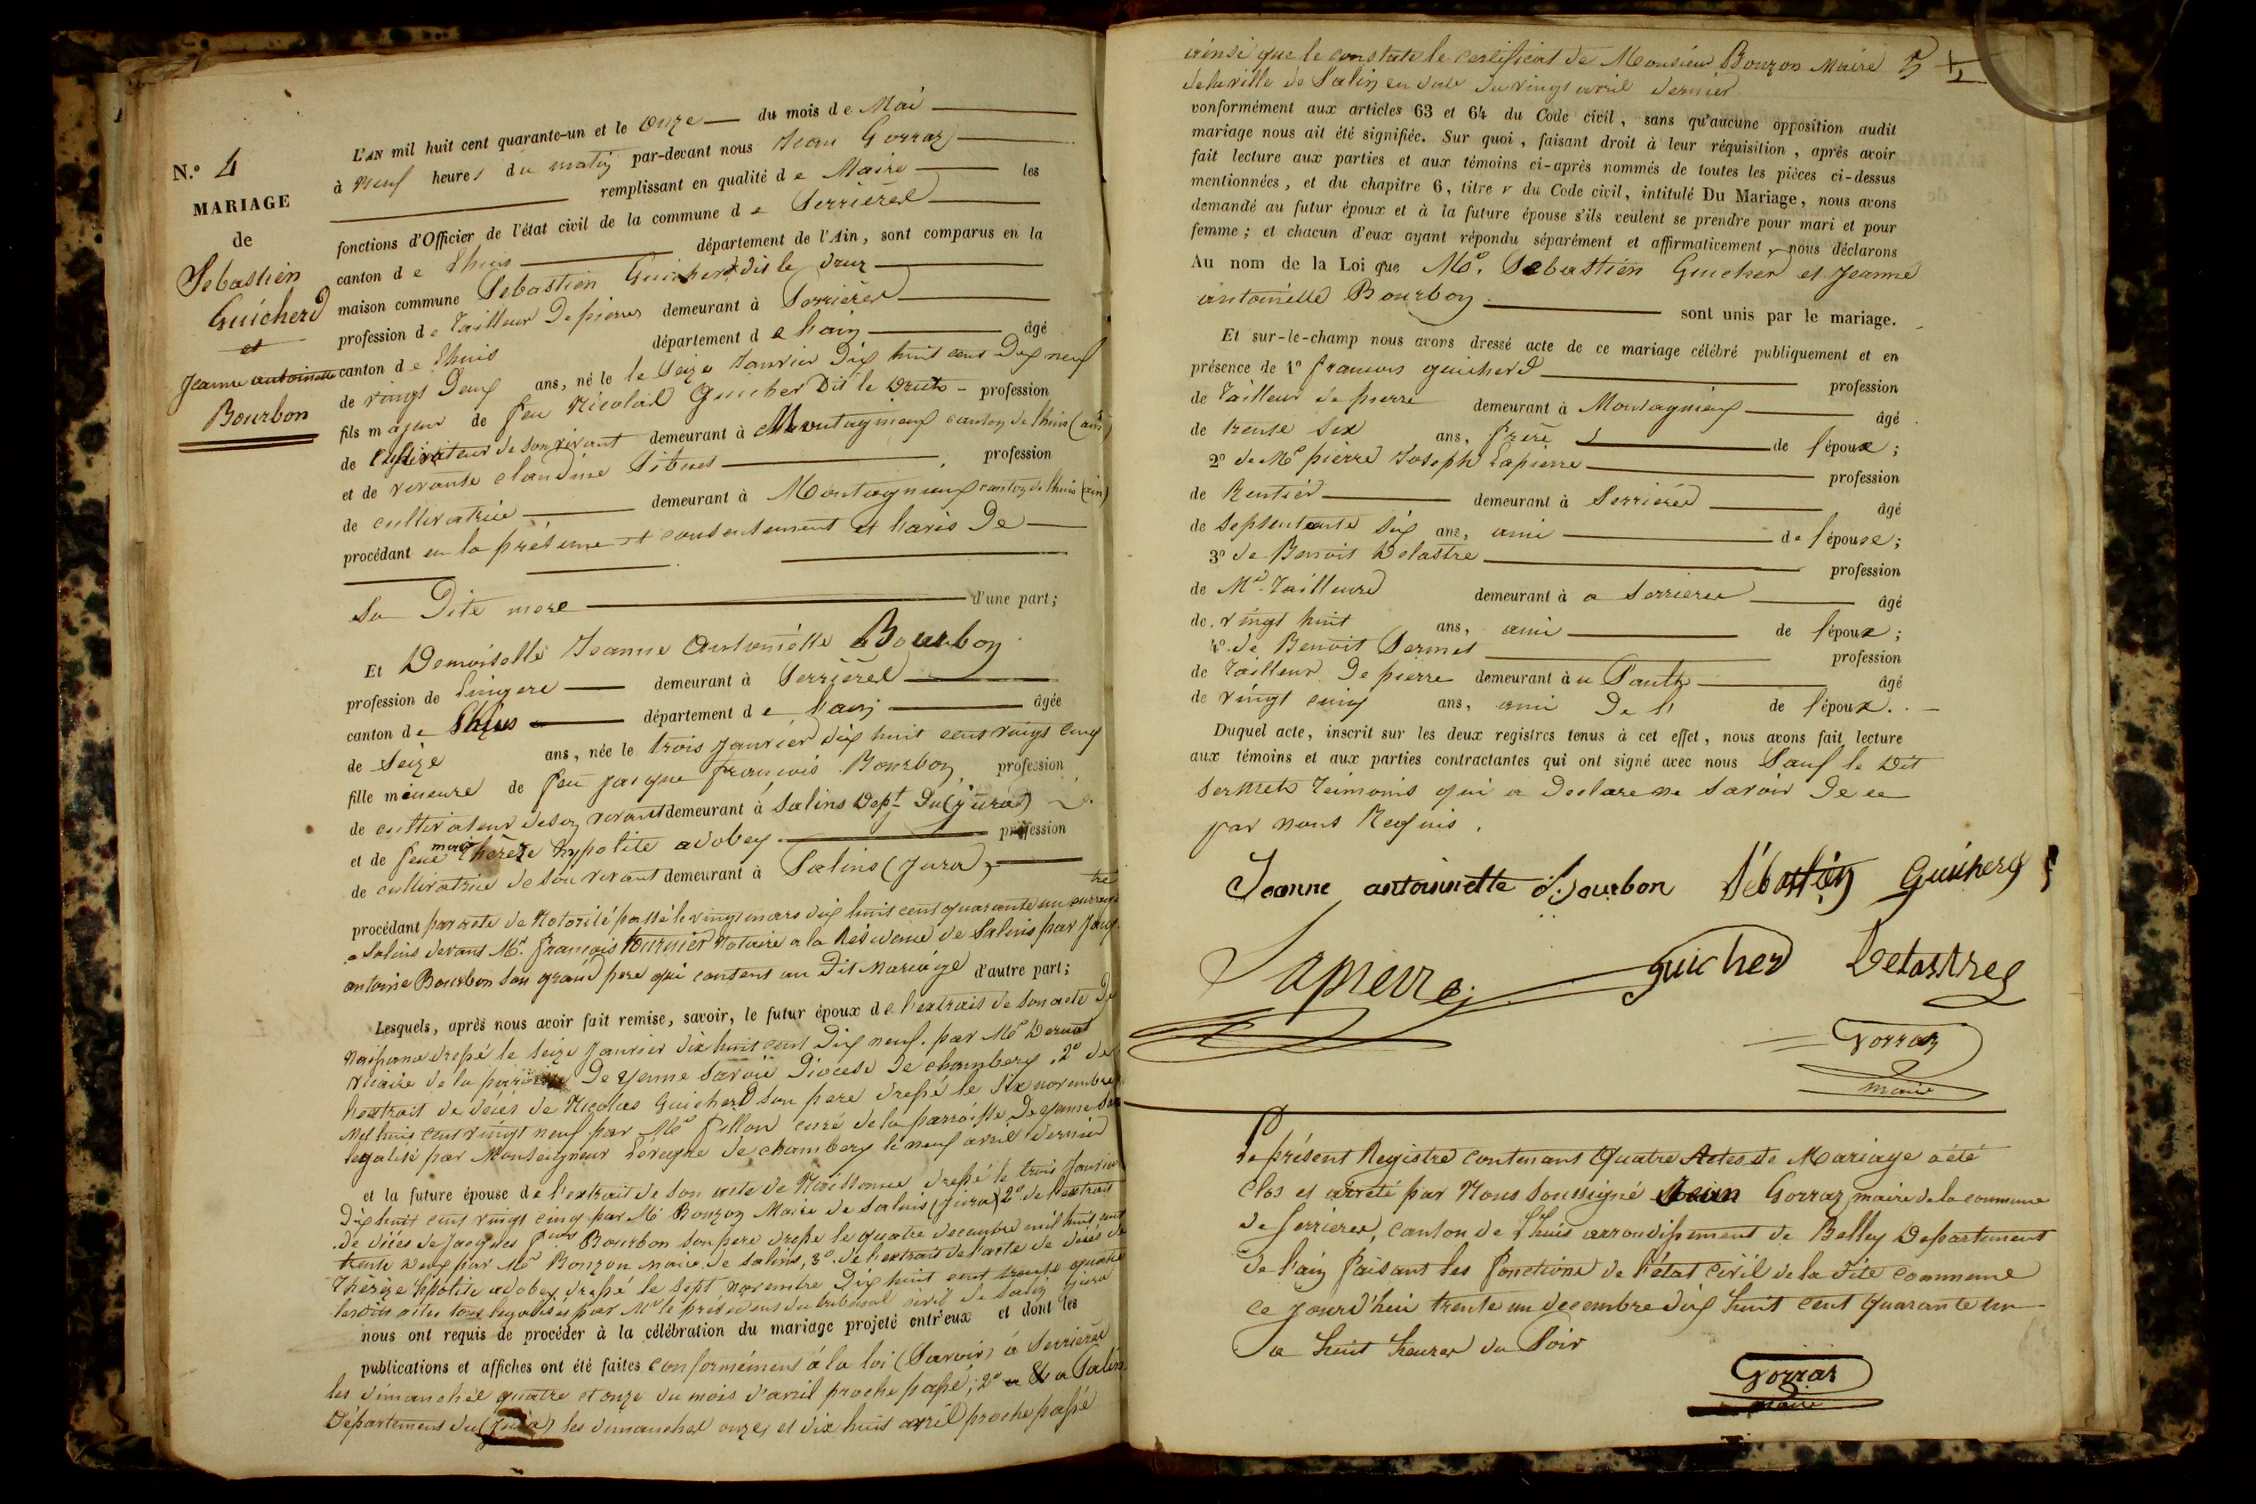 N.º 4
MARIAGE
de
Sebastien
Guicherd
et
Jeanne antoinette
Bourbon
L'AN mil huit cent quarante-un et le onze du mois de Mai
à neuf heures du matin par-devant nous Jean Gorraz
remplissant en qualité de Maire les
fonctions d'Officier de l'état civil de la commune de Serrières
canton de Lhuis département de l'Ain, sont comparus en la
maison commune Sebastien Guicherd dit le druz
profession de tailleur de pierres demeurant à Serrières
canton de Lhuis département de l'ain âgé
de vingt deux ans, né le le seize Janvier dix huit cent dix neuf
fils majeur de feu Nicolas Guicher dit le Druts - profession
de Cultivateur de son vivant demeurant à Montagnieux canton de lhuis (ain)
et de vivante claudine profession
de cultivatrice demeurant à Montagnieux canton de lhuis (ain)
procédant en la présence et consentement et l'avis De
Sa Dite mere d'une part;
Et Demoiselle Jeanne Antoinette Bourbon
profession de Lingere demeurant à Serrières
canton de Lhuis département de l'ain âgée
de seize ans, née le trois Janvier dix huit cent vingt cinq
fille mineure de feu jacque françois Bourbon profession
de cultivateur de son vivant demeurant à Salins Dept Du (jura)
et de feue marie thérèze hypolite adobey profession
de cultivatrice de son vivant demeurant à Salins (Jura)
procédant par acte de Notorité passé le vingt mars dix huit cent quarante un
a Salins devant Mr. françois tournier Notaire a la Résidence de Salins par Jacq
antoine Bourbon son grand pere qui consent au Dit Mariage d'autre part;
Lesquels, après nous avoir fait remise, savoir, le futur époux de l'extrait de son acte De
Naissance dressé le seize Janvier dix huit cent Dix neuf. par Mr
vicaire de la paroisse De yenne Savoie Diocese De chambery, 2º de
l'extrait de décés de Nicolas Guicherd son pere dressé le six novembre
Mil huit cent vingt neuf par Mr fillion curé de la parroisse De yenne
legalisé par Monseigneur L'évêque de chambery le neuf avril dernier
et la future épouse de l'extrait de son acte de Naissance dressé le trois Janvier
Dix huit cent vingt cinq par Mr Bouzon Maire de Salins (jura) 2º de l'extrait
de décés de Jacques fçois Bourbon son pere dressé le quatre decembre mil huit cent
trente deux par Mr Bouzon maire de Salins, 3º de l'extrait de l'acte de décés de
Thérèze hipolite adobey dressé le sept novembre Dix huit cent trente quatre
les dits actes tous legalisés par Mr le président du tribunal civil de Salin jura
nous ont requis de procéder à la célébration du mariage projeté entr'eux et dont les
publications et affiches ont été faites conformément à la loi (Savoir) à Serrières
les dimanches quatre et onze du mois d'avril proche passé; 2º a Salins
Département du (Jura) les dimanches onze, et dix huit avril proche passé
ainsi que le constate le certificat de Monsieur Bouzon Maire
de la ville de Salin en date du vingt avril dernier
conformément aux articles 63 et 64 du Code civil, sans qu'aucune opposition audit
mariage nous ait été signifiée. Sur quoi, faisant droit à leur réquisition, après avoir
fait lecture aux parties et aux témoins ci-après nommés de toutes les pièces ci-dessus
mentionnées, et du chapitre 6, titre v du Code civil, intitulé Du Mariage, nous avons
demandé au futur époux et à la future épouse s'ils veulent se prendre pour mari et pour
femme; et chacun d'eux ayant répondu séparément et affirmativement, nous déclarons
Au nom de la Loi que Mr. Sebastien Guicher et Jeanne
antoinette Bourbon sont unis par le mariage.
Et sur-le-champ nous avons dressé acte de ce mariage célébré publiquement et en
présence de 1º francois guicherd profession
de tailleur de pierre demeurant à Montagnieux âgé
de trente six ans, frère de l'époux;
2º de Mr pierre Joseph Lapierre profession
de Rentier demeurant à Serrieres âgé
de septentante six ans, ami de l'épouse;
3º de Benoit Delastre profession
de Md Tailleur demeurant à a Serrieres âgé
de vingt huit ans, ami de l'époux;
4º de Benoit Sermet profession
de tailleur De pierre demeurant à âgé
de vingt cinq ans, ami De l' de l'époux.
Duquel acte, inscrit sur les deux registres tenus à cet effet, nous avons fait lecture
aux témoins et aux parties contractantes qui ont signé avec nous Sauf le Dit
Sermets témoins qui a Declare ne savoir De ce
par nous Requis.
Jeanne antoinette Bourbon Sébastien Guicherd
Lapierre Guicherd Delastres
Gorraz
maire
Le présent Registre contenant Quatre Actes de Mariage a été
Clos et arreté par Nous soussigné Jean Gorraz maire de la commune
de Serrieres, canton de Lhuis arrondissement de Belley Departement
de l'ain faisant les fonctions de l'état civil de la dite commune
ce jourd'hui trente un decembre dix huit cent quarante un
a huit heures du Soir
Gorraz
Maire